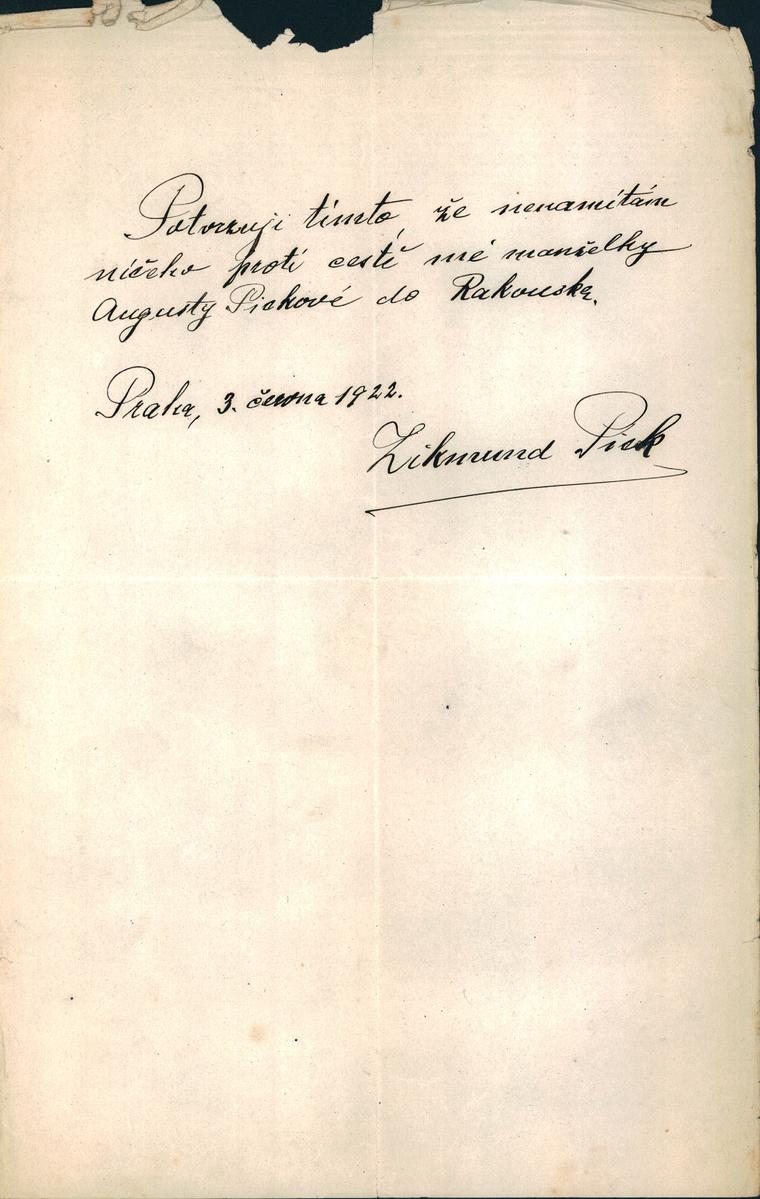 Potvrzuji tímto, že nenamítám
ničeho proti cestě mé manželky
Augusty Pickové do Rakouska.
Praha, 3. června 1922.
Zikmund Pick